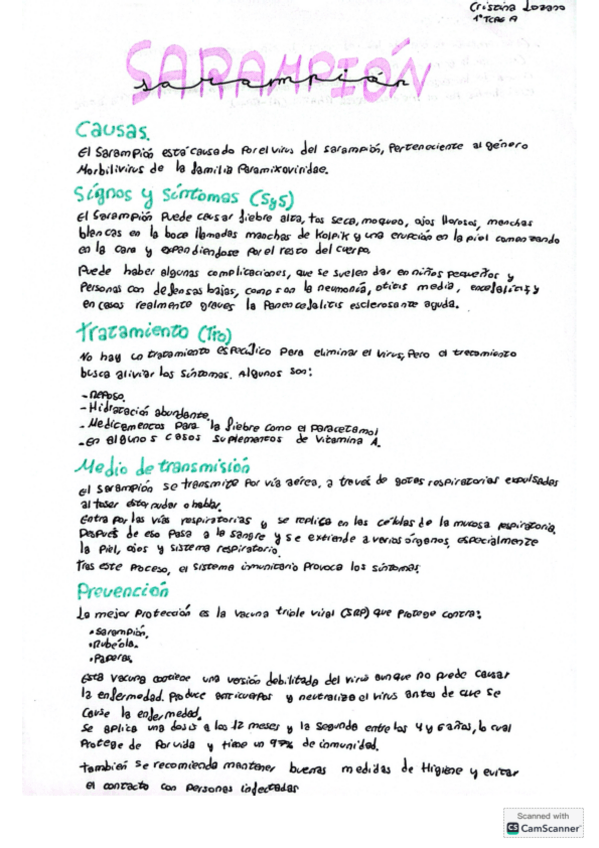 Cristina Lozano
1º TCAE A
SARAMPIÓN
sarampión
Causas.
El Sarampión está causado por el virus del sarampión, Perteneciente al género
Morbilivirus de la familia Paramixoviridae.
Signos y Síntomas (SyS)
El Sarampión Puede causar fiebre alta, tos seca, moqueo, ojos llorosos, manchas
blancas en la boca llamadas manchas de Kolpik y una erupción en la piel comenzando
en la cara y expandiendose por el resto del cuerpo.
Puede haber algunas complicaciones, que se suelen dar en niños pequeños y
Personas con defensas bajas, como son la neumonía, otitis media, encefalitis y
en casos realmente graves la Panencefalitis esclerosante aguda.
Tratamiento (Tto)
No hay un tratamiento específico Para eliminar el virus, Pero el tratamiento
busca aliviar los síntomas. Algunos son:
- Reposo.
- Hidratación abundante.
- Medicamentos para la fiebre como el paracetamol
- en algunos casos suplementos de Vitamina A.
Medio de transmisión
el sarampión se transmite por vía aérea, a través de gotas respiratorias expulsadas
al toser estornudar o hablar.
Entra por las vías respiratorias y se replica en las células de la mucosa respiratoria.
Después de eso Pasa a la sangre y se extiende a varios órganos, especialmente
la piel, ojos y sistema respiratorio.
Tras este proceso, el sistema inmunitario provoca los síntomas.
Prevención
La mejor Protección es la vacuna triple viral (SRP) que Protege contra:
• Sarampión.
• Rubéola.
• Paperas.
Esta vacuna contiene una versión debilitada del virus aunque no puede causar
la enfermedad. Produce anticuerpos y neutraliza el virus antes de que se
cause la enfermedad.
Se aplica una dosis a los 12 meses y la segunda entre los 4 y 6 años, lo cual
Protege de Por vida y tiene un 97% de inmunidad.
también se recomienda mantener buenas medidas de Higiene y evitar
el contacto con personas infectadas
Scanned with
CS CamScanner